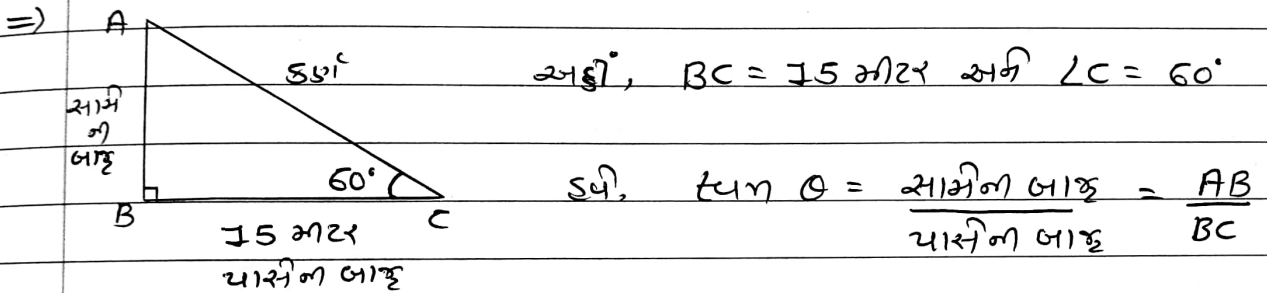 => A
કર્ણ
સામે
ની
બાજુ
60°
B C
15 મીટર
પાસેની બાજુ
અહીં, BC = 15 મીટર અને ∠C = 60°
હવે, tan θ = સામેની બાજુ / પાસેની બાજુ = AB / BC